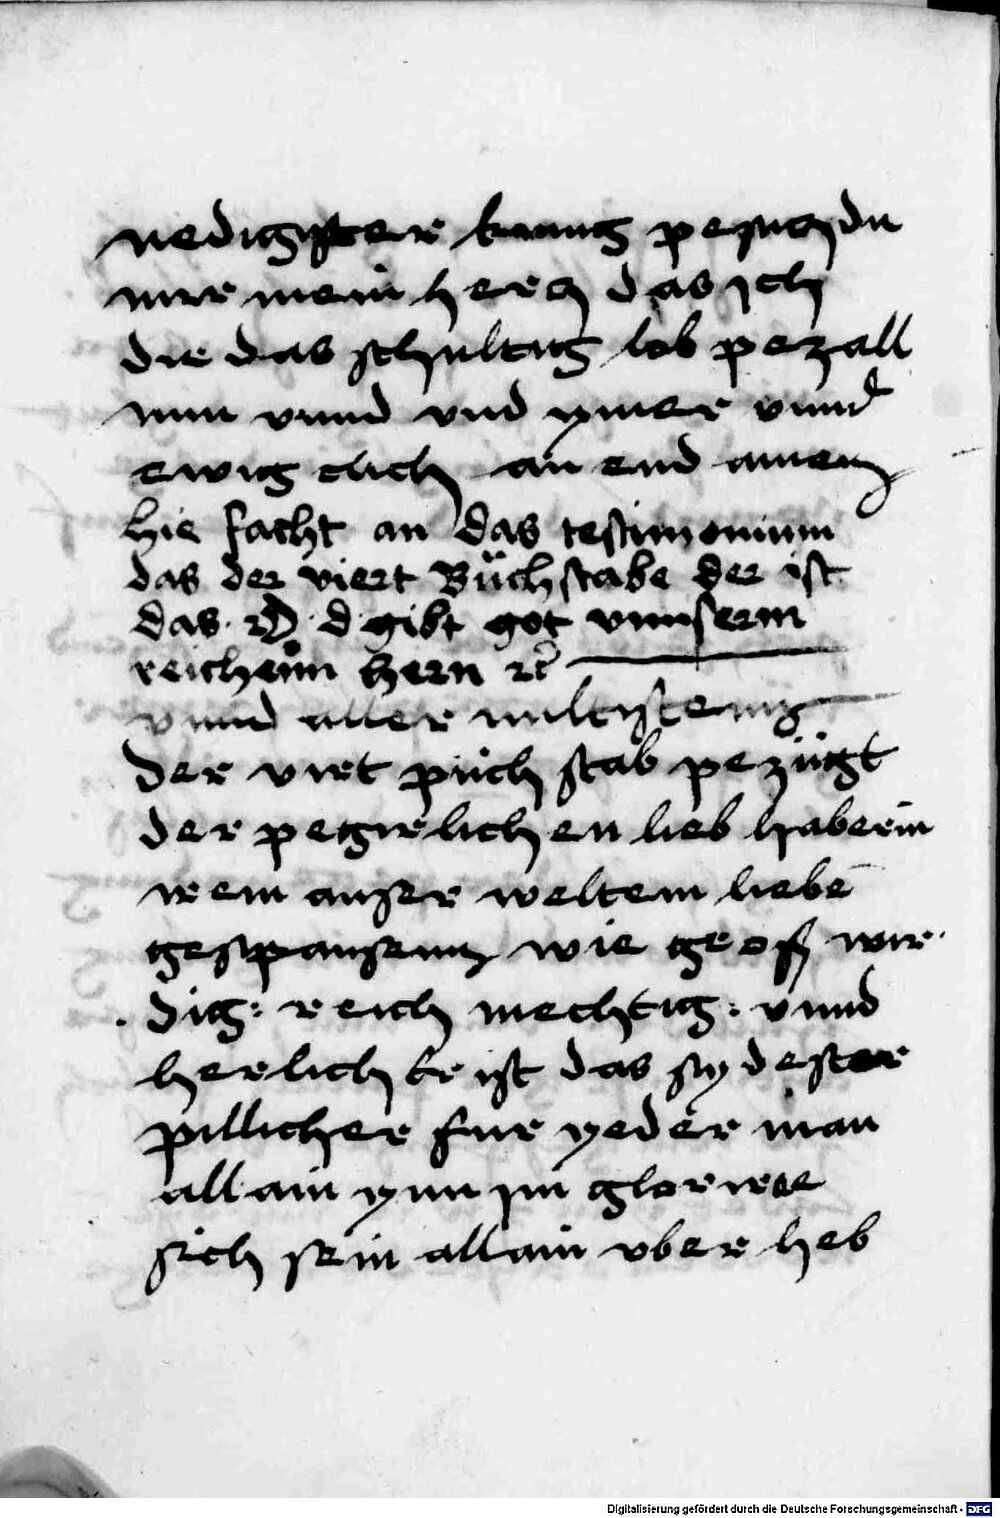 nedigister kaung pesuch du
mir mein hercz das ich
die das schultig lob pezall
nun vnnd vnd ymer vnnd
ewig clich an end amen
hie facht an das testimonium
das der viert Büchstabe der ist
das D d gibt got vnnserm
reichenn hern rc
vnnd aller miltisten
Der virt puch stab pezügt
der pegirlichen lieb haberin
irem auser weltem liebē
gespausenn wie geoß wir
dig: reich mechtig: vnnd
herlich er ist das sy dester
pillicher fur yeder man
allain ynn im gloriere
sich sein allain vber heb
Digitalisierung gefördert durch die Deutsche Forschungsgemeinschaft - DFG